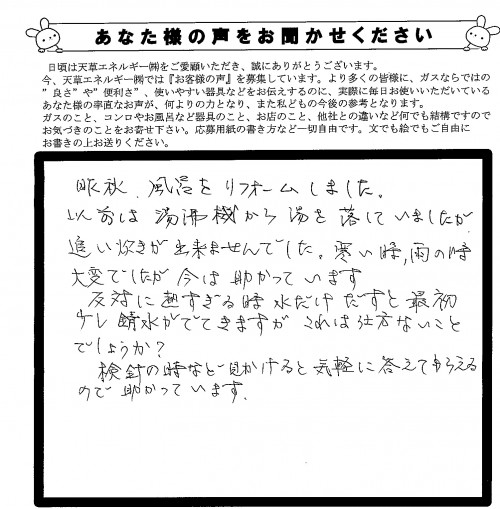 あなた様の声をお聞かせください
日頃は天草エネルギー㈱をご愛顧いただき、誠にありがとうございます。
今、天草エネルギー㈱では『お客様の声』を募集しています。より多くの皆様に、ガスならではの
"良さ"や"便利さ"、使いやすい器具などをお伝えするのに、実際に毎日お使いいただいている
あなた様の率直なお声が、何よりの力となり、また私どもの今後の参考となります。
ガスのこと、コンロやお風呂など器具のこと、お店のこと、他社との違いなど何でも結構ですので
お気づきのことをお寄せ下さい。応募用紙の書き方など一切自由です。文でも絵でもご自由に
お書きの上お送りください。
昨秋、風呂をリフォームしました。
以前は湯沸機から湯を落していましたが
追い炊きが出来ませんでした。寒い時、雨の時
大変でしたが今は助かっています
反対に熱すぎる時水だけだすと最初
少し錆水がでてきますがこれは仕方ないこと
でしょうか?
検針の時など見かけると気軽に答えてもらえる
ので助かっています.